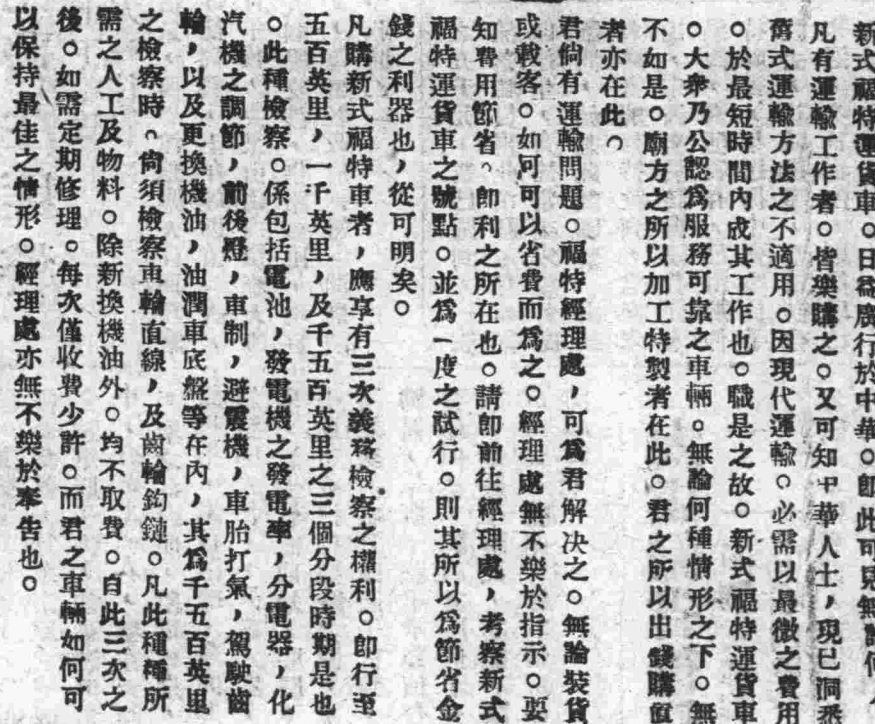 新式福特運貨車。日益廣行於中華。卽此可見無論何人
凡有運輸工作者。皆樂購之。又可知中華人士，現已洞悉
舊式運輸方法之不適用。因現代運輸。必需以最微之費用
。於最短時間內成其工作也。職是之故。新式福特運貨車
。大衆乃公認爲服務可靠之車輛。無論何種情形之下。無
不如是。廠方之所以加工特製者在此。君之所以出錢購置
者亦在此。
君倘有運輸問題。福特經理處，可爲君解决之。無論裝貨
或載客。如何可以省費而爲之。經理處無不樂於指示。要
知費用節省。卽利之所在也。請卽前往經理處，考察新式
福特運貨車之號點。並爲一度之試行。則其所以爲節省金
錢之利器也，從可明矣。
凡購新式福特車者，應享有三次義務檢察之權利。卽行至
五百英里，一千英里，及千五百英里之三個分段時期是也
。此種檢察。係包括電池，發電機之發電率，分電器，化
汽機之調節，前後燈，車制，避震機，車胎打氣，駕駛齒
輪，以及更換機油，油潤車底盤等在內，其爲千五百英里
之檢察時。尙須檢察車輪直線，及齒輪鈎鏈。凡此種種所
需之人工及物料。除新換機油外。均不取費。自此三次之
後。如需定期修理。每次僅收費少許。而君之車輛如何可
以保持最佳之情形。經理處亦無不樂於奉告也。